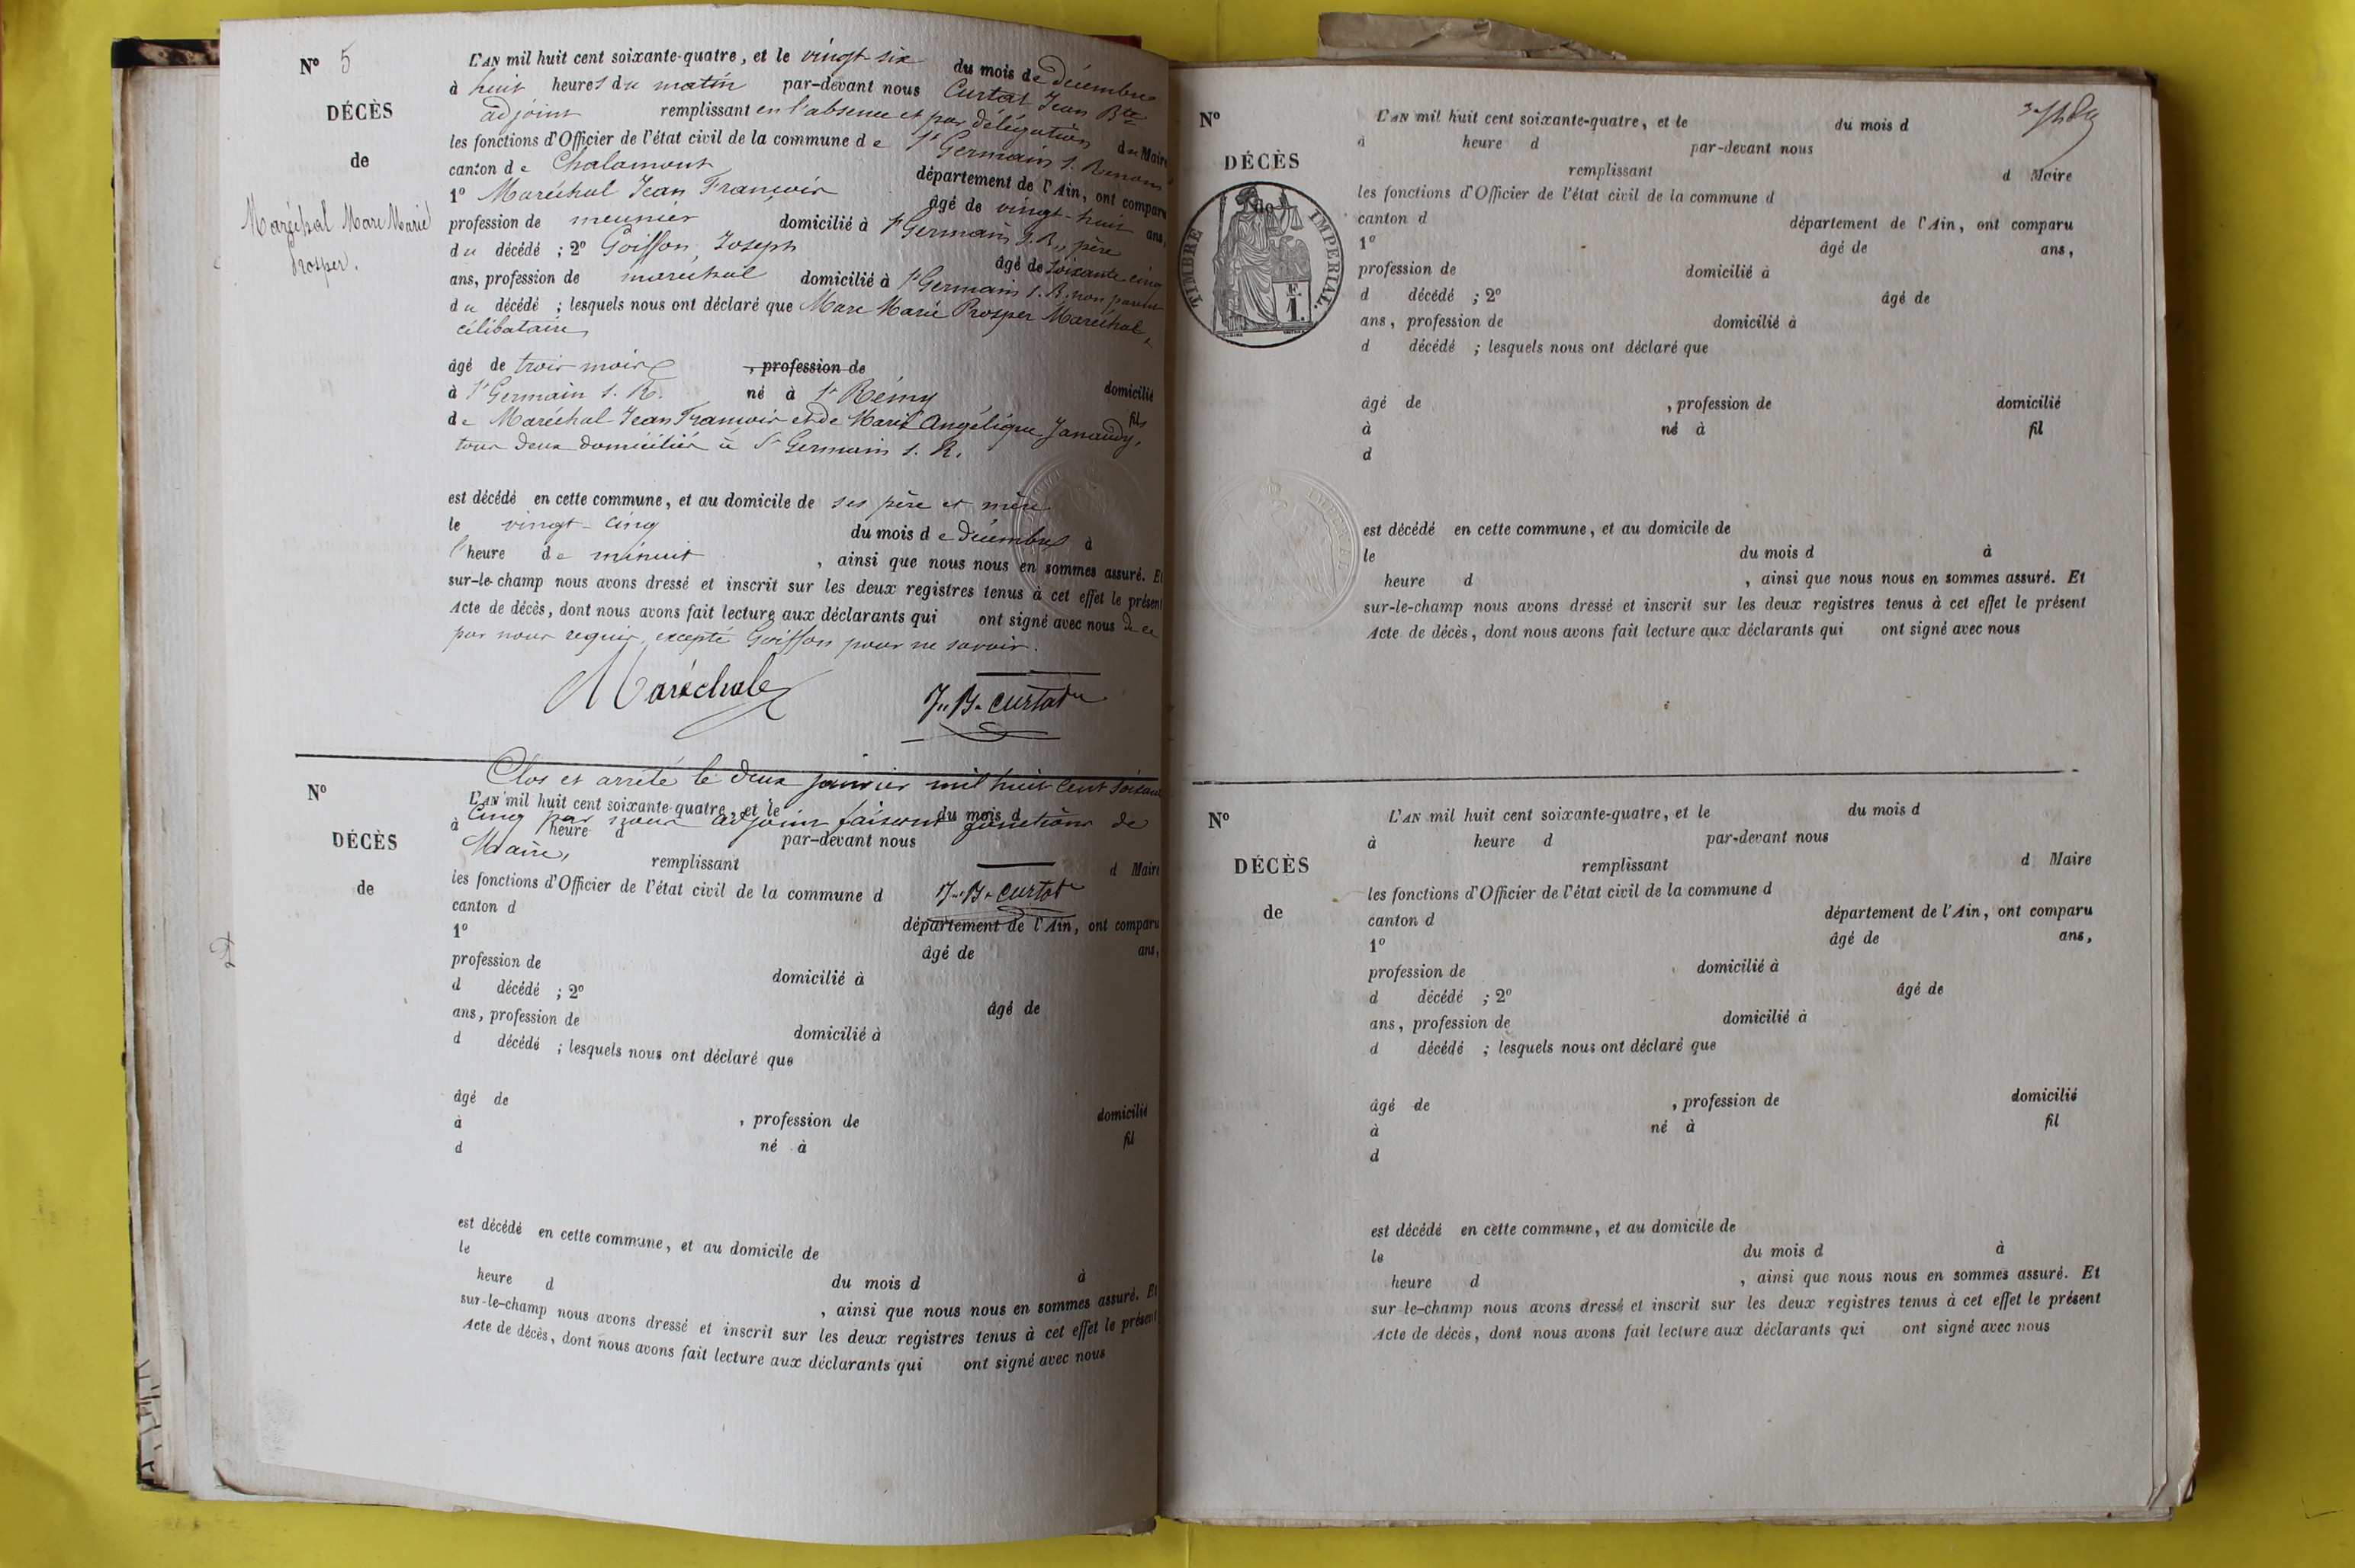 N° 5
DÉCÈS
de
Maréchal Marc Marie
Prosper.
L'AN mil huit cent soixante-quatre, et le vingt-six du mois de Décembre
à huit heures du matin par-devant nous Curtat Jean Bte
adjoint remplissant en l'absence et par délégation du Maire
les fonctions d'Officier de l'état civil de la commune de St Germain s. Renom
canton de Chalamont département de l'Ain, ont comparu
1° Maréchal Jean François âgé de vingt-huit ans,
profession de meunier domicilié à St Germain s. R., père
du décédé ; 2° Goiffon, Joseph âgé de soixante cinq
ans, profession de maréchal domicilié à St Germain s. R. non parent
du décédé ; lesquels nous ont déclaré que Marc Marie Prosper Maréchal,
célibataire,
âgé de trois mois , profession de domicilié
à St Germain s. R. né à St Rémy fils
de Maréchal Jean François et de Marie Angélique Janaudy,
tous deux domiciliés à St Germain s. R.
est décédé en cette commune, et au domicile de ses père et mère
le vingt-cinq du mois de Décembre à
l'heure de minuit , ainsi que nous nous en sommes assuré. Et
sur-le-champ nous avons dressé et inscrit sur les deux registres tenus à cet effet le présent
Acte de décès, dont nous avons fait lecture aux déclarants qui ont signé avec nous de ce
par nous requis, excepté Goiffon pour ne savoir.
Maréchal J.-B. Curtat
Clos et arrêté le deux janvier mil huit cent soixante
cinq par nous adjoint faisant fonctions de
Maire,
J.-B. Curtat
N°
DÉCÈS
de
L'AN mil huit cent soixante-quatre, et le du mois d
à heure d par-devant nous
remplissant d Maire
les fonctions d'Officier de l'état civil de la commune d
canton d département de l'Ain, ont comparu
1° âgé de ans,
profession de domicilié à
d décédé ; 2° âgé de
ans, profession de domicilié à
d décédé ; lesquels nous ont déclaré que
âgé de , profession de domicilié
à né à fil
d
est décédé en cette commune, et au domicile de
le du mois d à
heure d , ainsi que nous nous en sommes assuré. Et
sur-le-champ nous avons dressé et inscrit sur les deux registres tenus à cet effet le présent
Acte de décès, dont nous avons fait lecture aux déclarants qui ont signé avec nous
N°
DÉCÈS
de
TIMBRE IMPERIAL.
F.
1.
L'AN mil huit cent soixante-quatre, et le du mois d
à heure d par-devant nous
remplissant d Maire
les fonctions d'Officier de l'état civil de la commune d
canton d département de l'Ain, ont comparu
1° âgé de ans,
profession de domicilié à
d décédé ; 2° âgé de
ans, profession de domicilié à
d décédé ; lesquels nous ont déclaré que
âgé de , profession de domicilié
à né à fil
d
est décédé en cette commune, et au domicile de
le du mois d à
heure d , ainsi que nous nous en sommes assuré. Et
sur-le-champ nous avons dressé et inscrit sur les deux registres tenus à cet effet le présent
Acte de décès, dont nous avons fait lecture aux déclarants qui ont signé avec nous
N°
DÉCÈS
de
L'AN mil huit cent soixante-quatre, et le du mois d
à heure d par-devant nous
remplissant d Maire
les fonctions d'Officier de l'état civil de la commune d
canton d département de l'Ain, ont comparu
1° âgé de ans,
profession de domicilié à
d décédé ; 2° âgé de
ans, profession de domicilié à
d décédé ; lesquels nous ont déclaré que
âgé de , profession de domicilié
à né à fil
d
est décédé en cette commune, et au domicile de
le du mois d à
heure d , ainsi que nous nous en sommes assuré. Et
sur-le-champ nous avons dressé et inscrit sur les deux registres tenus à cet effet le présent
Acte de décès, dont nous avons fait lecture aux déclarants qui ont signé avec nous